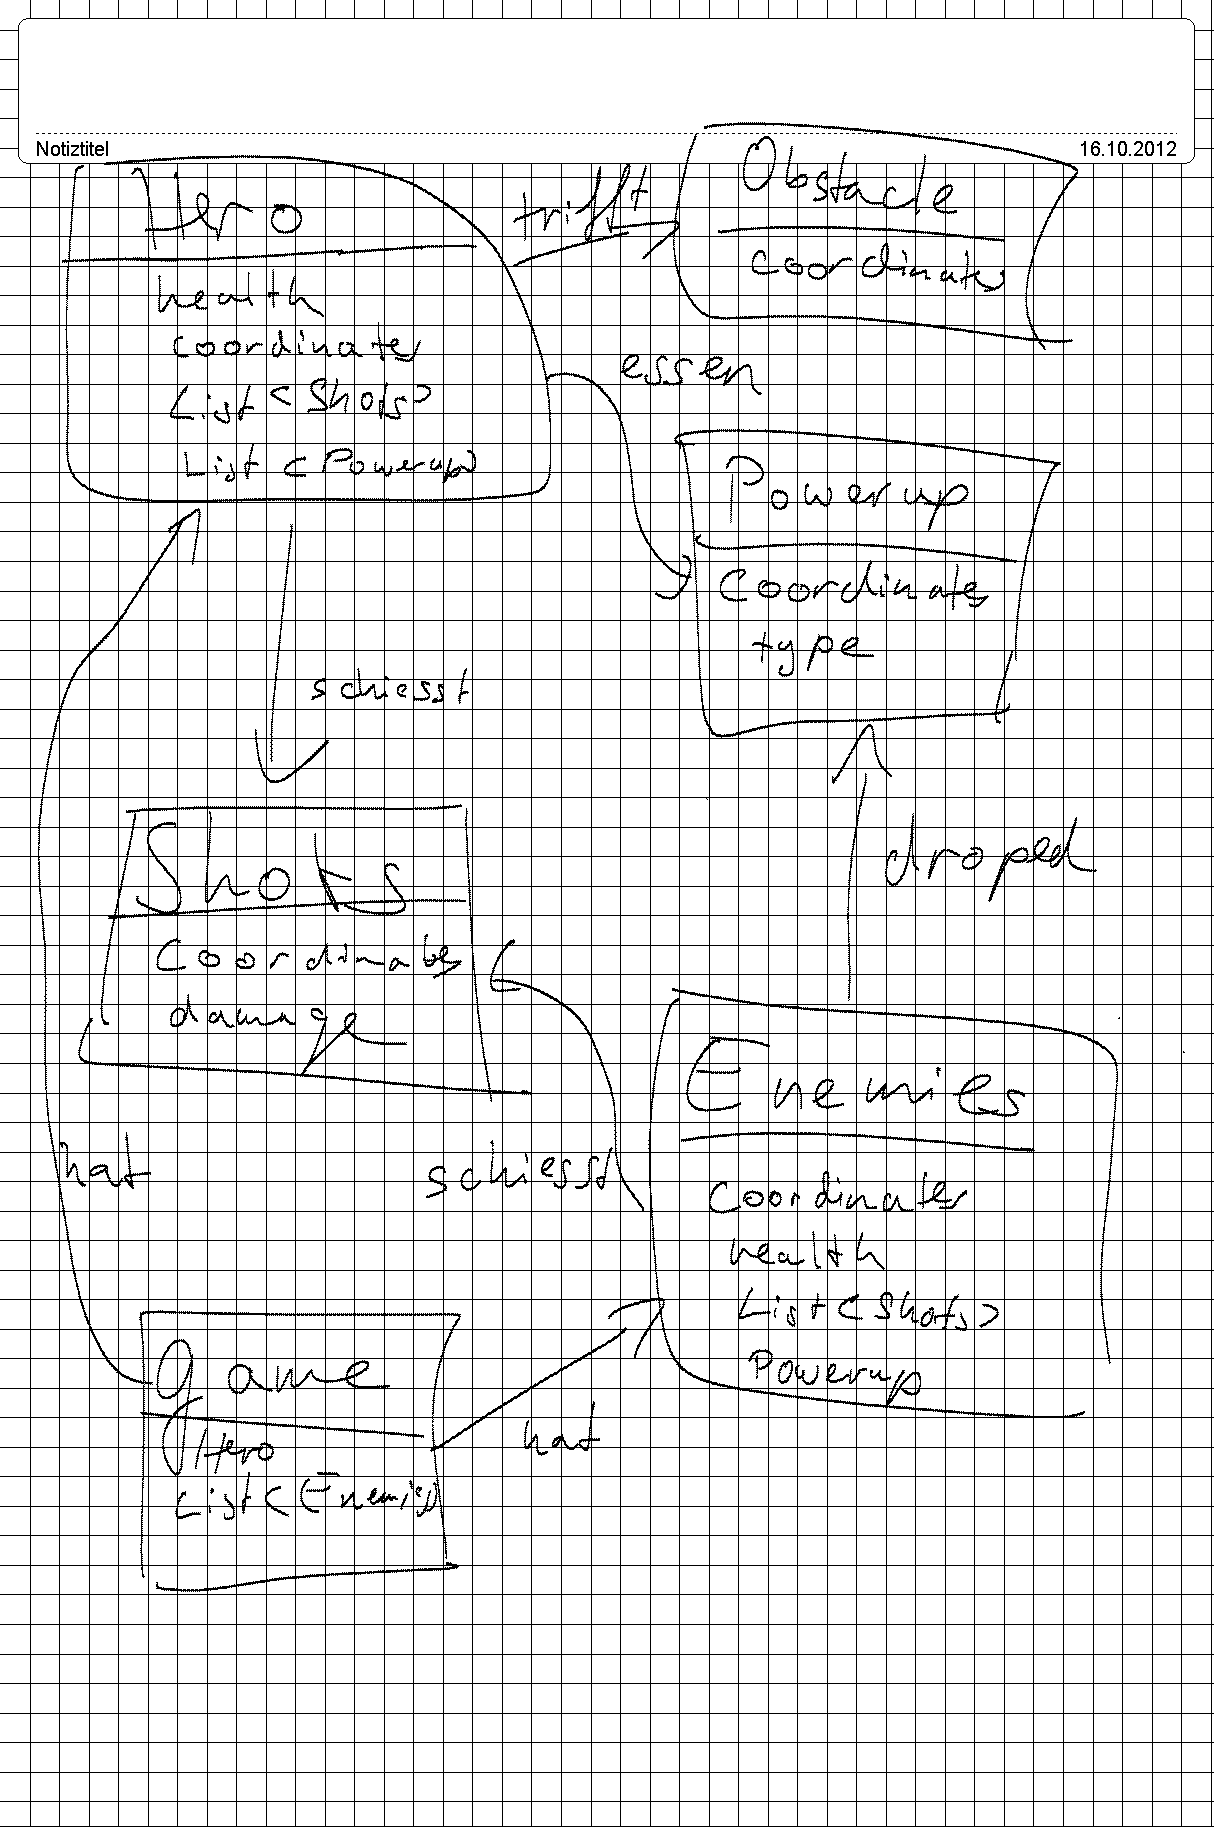 Notiztitel
16.10.2012
Hero
health
coordinates
List <Shots>
List <Powerup>
trifft
Obstacle
coordinates
essen
Powerup
Coordinates
type
schiesst
droped
Shots
Coordinates
damage
hat
schiesst
Enemies
Coordinates
health
List <Shots>
Powerup
Game
Hero
List <Enemies>
hat